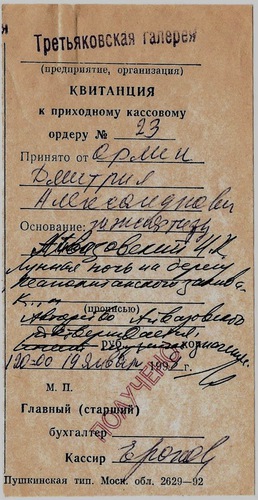 Третьяковская галерея
(предприятие, организация)
КВИТАНЦИЯ
к приходному кассовому
ордеру № 23
Принято от Орлин
Дмитрия
Александрович
Основание: за экспертизу
Айвазовский И.К.
Лунная ночь на берегу
Неаполитанского залива
(прописью)
Авторство Айвазовского
руб. коп.
120=00 19 января 1998 г.
ПОЛУЧЕНО
М. П.
Главный (старший)
бухгалтер
Кассир
Пушкинская тип. Моск. обл. 2629—92